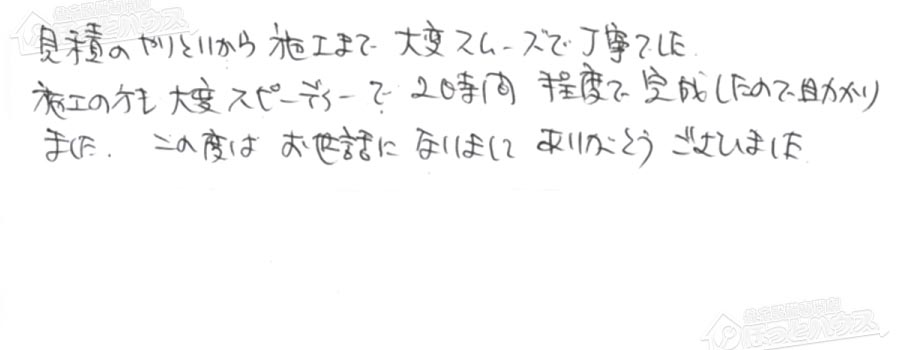 見積のやりとりから施工まで 大変スムーズで丁寧でした
施工の方も 大変スピーディーで 2時間 程度で 完成したので助かり
ました. この度は お世話に なりまして ありがとう ございました
ほっとハウス
ほっとハウス